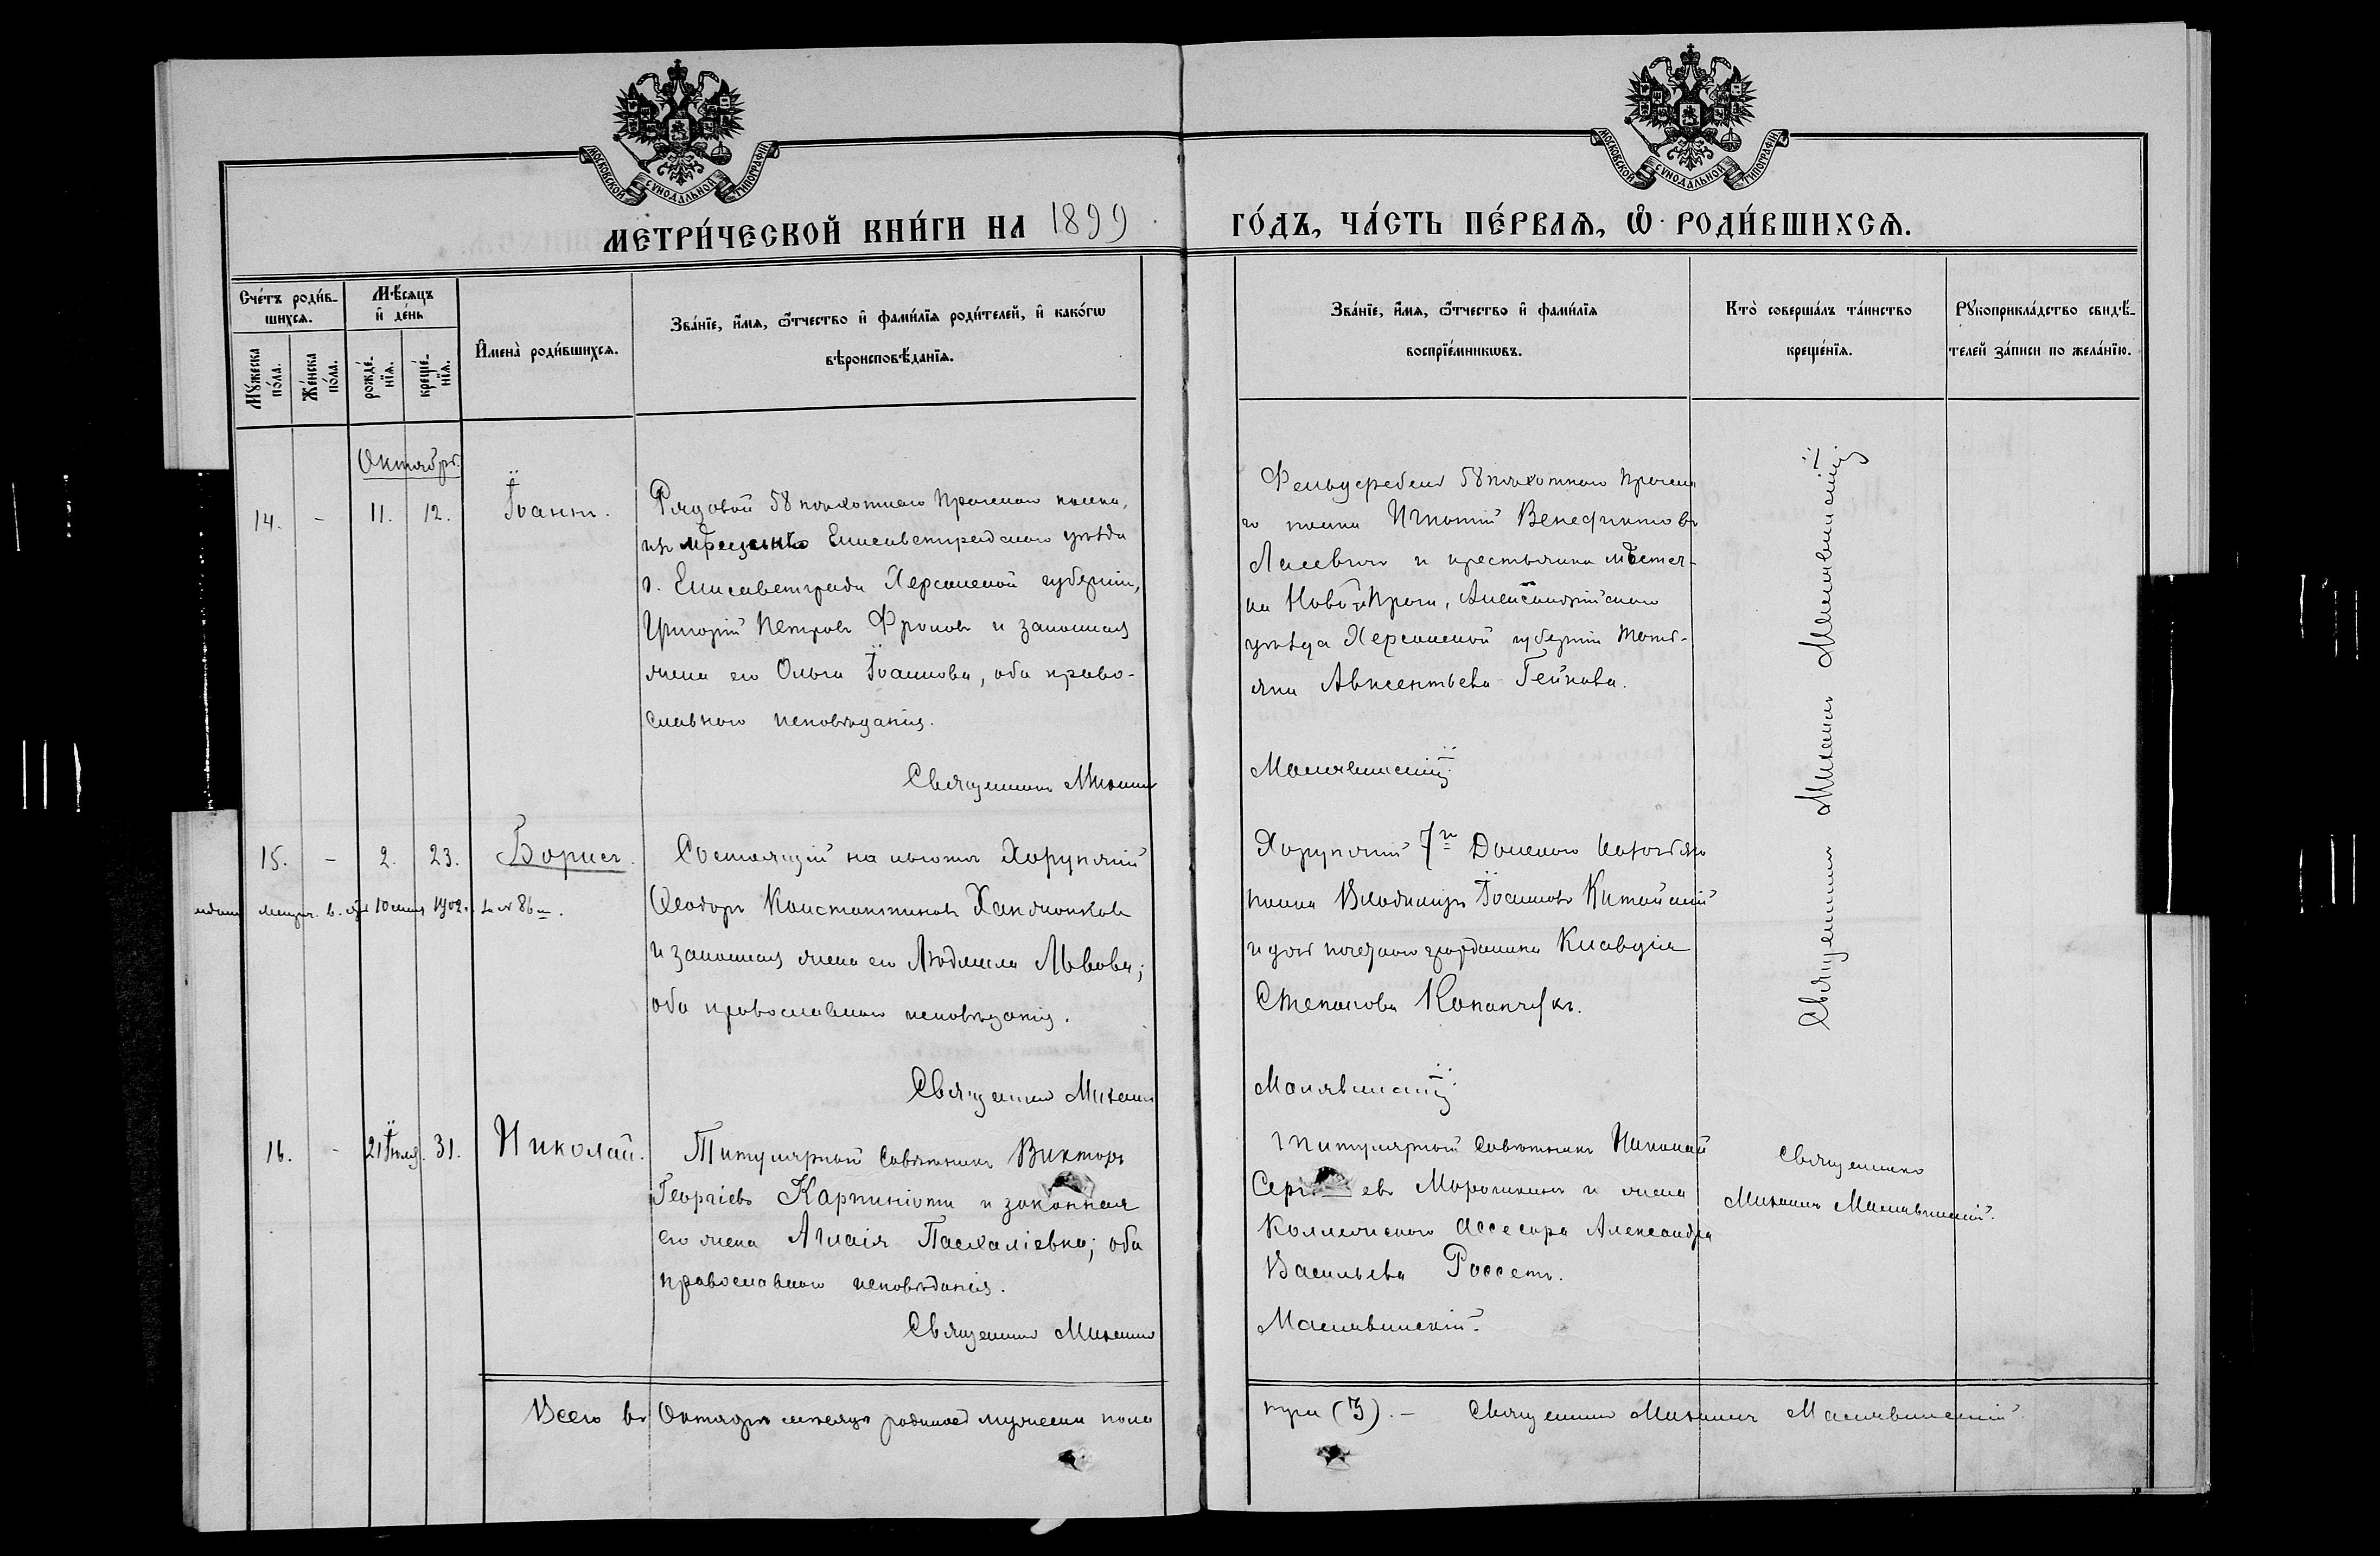 МОСКОВСКОЙ СѴНОДАЛЬНОЙ ТИПОГРАФІИ
МОСКОВСКОЙ СѴНОДАЛЬНОЙ ТИПОГРАФІИ
МЕТРИ́ЧЕСКОЙ КНИ́ГИ НА 1899 ГО́ДЪ, ЧА́СТЬ ПЕ́РВАѦ, Ѽ РОДИ́ВШИХСѦ.
Сче́тъ роди́в-
шихсѧ.
Мꙋ́жеска по́ла.
Же́нска по́ла.
Мѣ́сѧцъ и҆ де́нь
рожде́-
нїѧ.
креще́-
нїѧ.
И҆мена̀ роди́вшихсѧ.
Зва́нїе, и҆́мѧ, ѻ҆́тчество и҆ фами́лїѧ роди́телей, и҆ како́гѡ
вѣроисповѣ́данїѧ.
Зва́нїе, и҆́мѧ, ѻ҆́тчество и҆ фами́лїѧ
воспрїе́мникѡвъ.
Кто̀ соверша́лъ та́инство
креще́нїѧ.
Рꙋкоприкла́дство свидѣ́-
телей за́писи по жела́нїю.
Октябрь.
14. - 11. 12. Іоаннъ.
Рядовой 58 пѣхотнаго Прагскаго полка,
изъ мѣщанъ Елисаветградскаго уѣзда
г. Елисаветграда Херсонской губерніи,
Григорій Петровъ Фроловъ и законная
жена его Ольга Іоаннова, оба право-
славнаго исповѣданія.
Священникъ Михаилъ
Фельдфебель 58 пѣхотнаго Прагска
го полка Игнатій Венедиктовъ
Лисевичъ и крестьянка мѣстеч-
ка Новой Праги, Александрійскаго
уѣзда Херсонской губерніи Тать-
яна Авксентьева Гейкова.
Малявинскій
Священникъ Михаилъ Малявинскій
15. - 2. 23. Борисъ.
метрич. в. 10 1902 г. № 86
Состоящій на льготѣ Хорунжій
Ѳеодоръ Константиновъ Ханжонковъ
и законная жена его Людмила Львова;
оба православнаго исповѣданія.
Священникъ Михаилъ
Хорунжій 7го Донскаго казачьяго
полка Владиміръ Іоанновъ Китайскій
и дочь почетнаго гражданина Клавдія
Степанова
Малявинскій
16. - 21 Іюля. 31. Николай.
Титулярный Совѣтникъ Викторъ
Георгіевъ и законная
его жена Аглаія Пасхаліевна; оба
православнаго исповѣданія.
Священникъ Михаилъ
Титулярный Совѣтникъ Николай
Сергѣевъ Морошкинъ и жена
Коллежскаго Ассесора Александра
Васильева Россетъ.
Малявинскій.
Священникъ
Михаилъ Малявинскій.
Всего въ Октябрѣ мѣсяцѣ родилось мужеска пола
три (3). — Священникъ Михаилъ Малявинскій